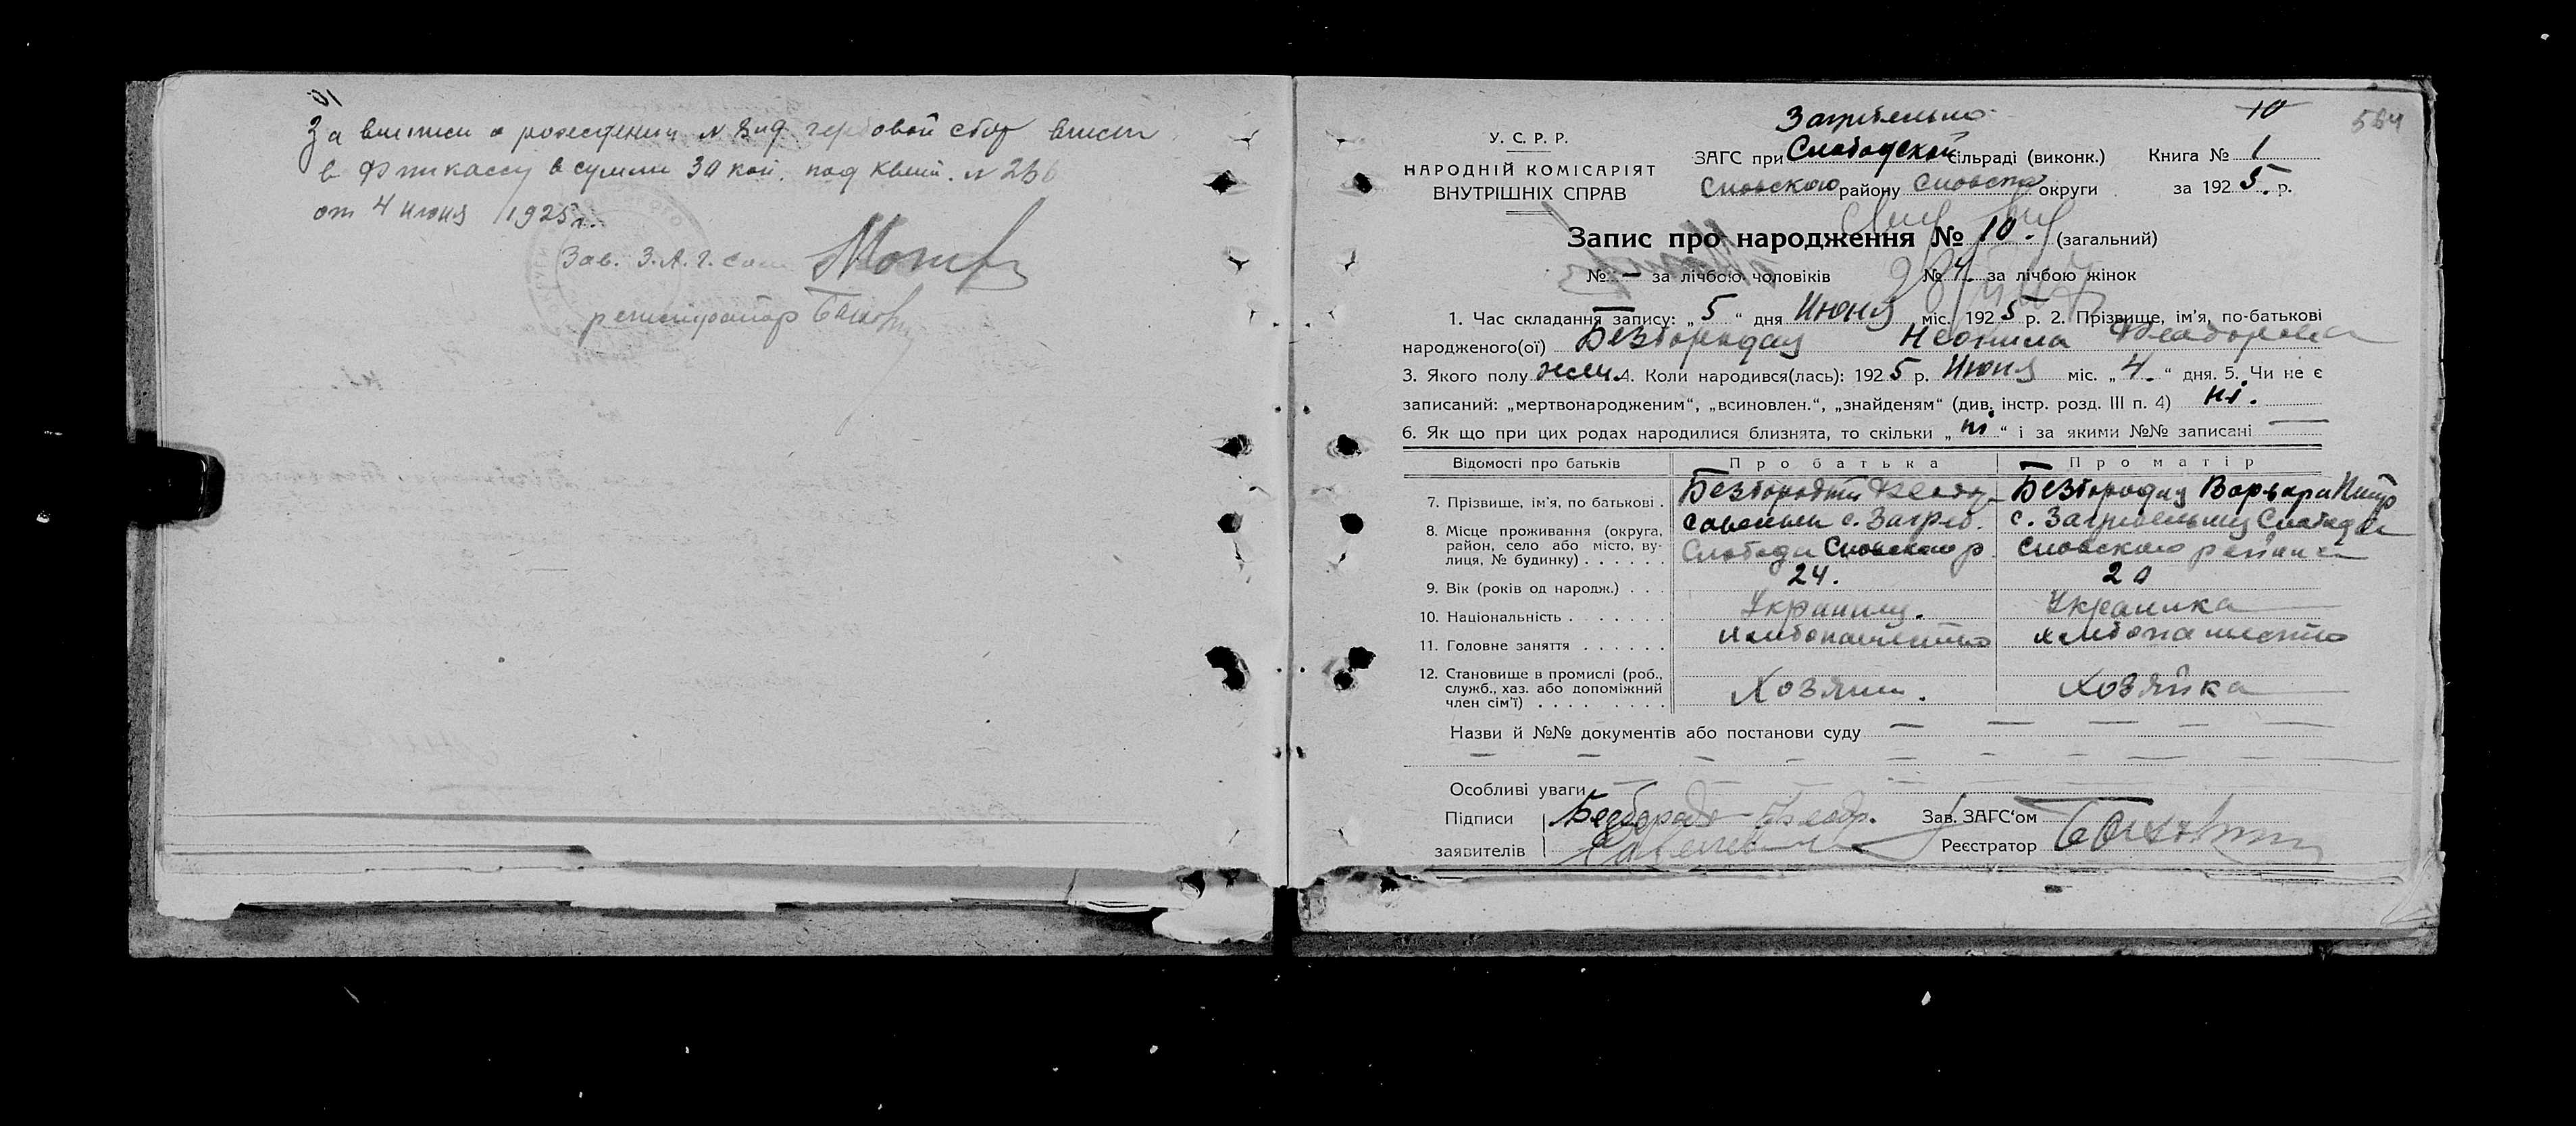 За выписи о рождении № 8 и 9 гербовой сбор внесен
в Финкассу в сумме 30 коп. под квит. № 236
от 4 июня 1925 г.
Зав. З.А.Г.Сом
регистратор
Загребельно
10
564
У. С. Р. Р.
НАРОДНІЙ КОМІСАРІЯТ
ВНУТРІШНІХ СПРАВ
ЗАГС при Слободской сільраді (виконк.)
Сновского району Сновской округи
Книга № 1
за 1925 р.
Запис про народження № 10. (загальний)
№ — за лічбою чоловіків № 4 за лічбою жінок
1. Час складання запису: „5“ дня Июня міс. 1925 р. 2. Прізвище, ім’я, по-батькові
народженого(ої) Безбородая Неонила Феодоровна
3. Якого полу жен. 4. Коли народився(лась): 1925 р. Июня міс. „4.“ дня. 5. Чи не є
записаний: „мертвонародженим“, „всиновлен.“, „знайденям“ (див. інстр. розд. III п. 4) ні.
6. Як що при цих родах народилися близнята, то скільки „ні“ і за якими №№ записані —
Відомості про батьків Про батька Про матір
7. Прізвище, ім’я, по батькові . Безбородий Феодор Безбородая Варвара Петр
8. Місце проживання (округа, район, село або місто, вулиця, № будинку) . . . . . . Савельев с. Загреб. с. Загребельная Слобода
Слобода Сновского р. Сновского района
9. Вік (років од народж.) . . . 24. 20
10. Національність . . . . . . . Украинец. Украинка
11. Головне заняття . . . . . . хлебопашество хлебопашество
12. Становище в промислі (роб., служб., хаз. або допоміжний член сім’ї) . . . . . . . . . Хозяин. Хозяйка
Назви й №№ документів або постанови суду — — — —
Особливі уваги
Підписи Безбородо Феодр. Зав. ЗАГС‘ом
заявителів Савельевич Реєстратор